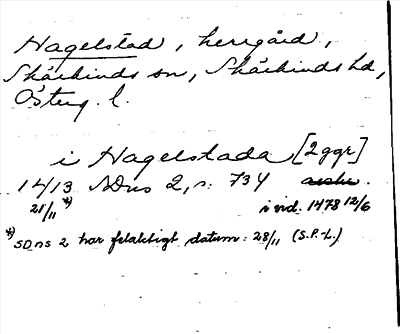 Hagelstad, herrgård,
Skärkinds sn, Skärkinds hd,
Österg. l.
i Hagelstada [2 ggr]
1413 SDns 2, s. 734
21/11 *) i vid. 1478 12/6
*) SD ns 2 har felaktigt datum: 28/11 (S.P.-L.)